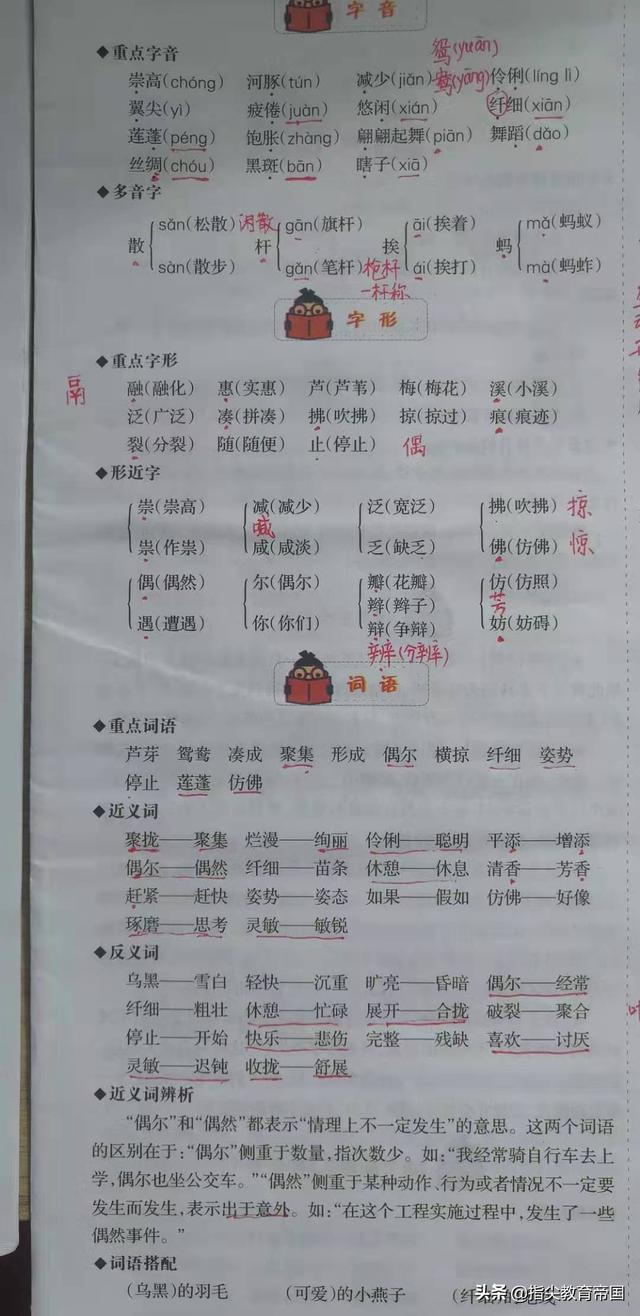 字音
◆重点字音
鸳(yuān)
崇高(chóng) 河豚(tún) 减少(jiǎn) 鸯(yāng) 伶俐(líng lì)
翼尖(yì) 疲倦(juàn) 悠闲(xián) 纤细(xiān)
莲蓬(péng) 饱胀(zhàng) 翩翩起舞(piān) 舞蹈(dǎo)
丝绸(chóu) 黑斑(bān) 瞎子(xiā)
◆多音字
sǎn(松散) 闲散 gān(旗杆) āi(挨着) mǎ(蚂蚁)
散 杆 挨 蚂
sàn(散步) gǎn(笔杆) 枪杆 ái(挨打) mà(蚂蚱)
一杆称
字形
◆重点字形
鬲 融(融化) 惠(实惠) 芦(芦苇) 梅(梅花) 溪(小溪)
泛(广泛) 凑(拼凑) 拂(吹拂) 掠(掠过) 痕(痕迹)
裂(分裂) 随(随便) 止(停止) 偶
◆形近字
崇(崇高) 减(减少) 泛(宽泛) 拂(吹拂) 掠
喊
祟(作祟) 咸(咸淡) 乏(缺乏) 佛(仿佛) 惊
偶(偶然) 尔(偶尔) 瓣(花瓣) 仿(仿照)
辫(辫子) 芳
遇(遭遇) 你(你们) 辩(争辩) 妨(妨碍)
辨(分辨)
词语
◆重点词语
芦芽 鸳鸯 凑成 聚集 形成 偶尔 横掠 纤细 姿势
停止 莲蓬 仿佛
◆近义词
聚拢——聚集 烂漫——绚丽 伶俐——聪明 平添——增添
偶尔——偶然 纤细——苗条 休憩——休息 清香——芳香
赶紧——赶快 姿势——姿态 如果——假如 仿佛——好像
琢磨——思考 灵敏——敏锐
◆反义词
乌黑——雪白 轻快——沉重 旷亮——昏暗 偶尔——经常
纤细——粗壮 休憩——忙碌 展开——合拢 破裂——聚合
停止——开始 快乐——悲伤 完整——残缺 喜欢——讨厌
灵敏——迟钝 收拢——舒展
◆近义词辨析
“偶尔”和“偶然”都表示“情理上不一定发生”的意思。这两个词语
的区别在于:“偶尔”侧重于数量,指次数少。如:“我经常骑自行车去上
学,偶尔也坐公交车。”“偶然”侧重于某种动作、行为或者情况不一定要
发生而发生,表示出于意外。如:“在这个工程实施过程中,发生了一些
偶然事件。”
◆词语搭配
(乌黑)的羽毛 (可爱)的小燕子 (纤
头条 @指尖教育帝国